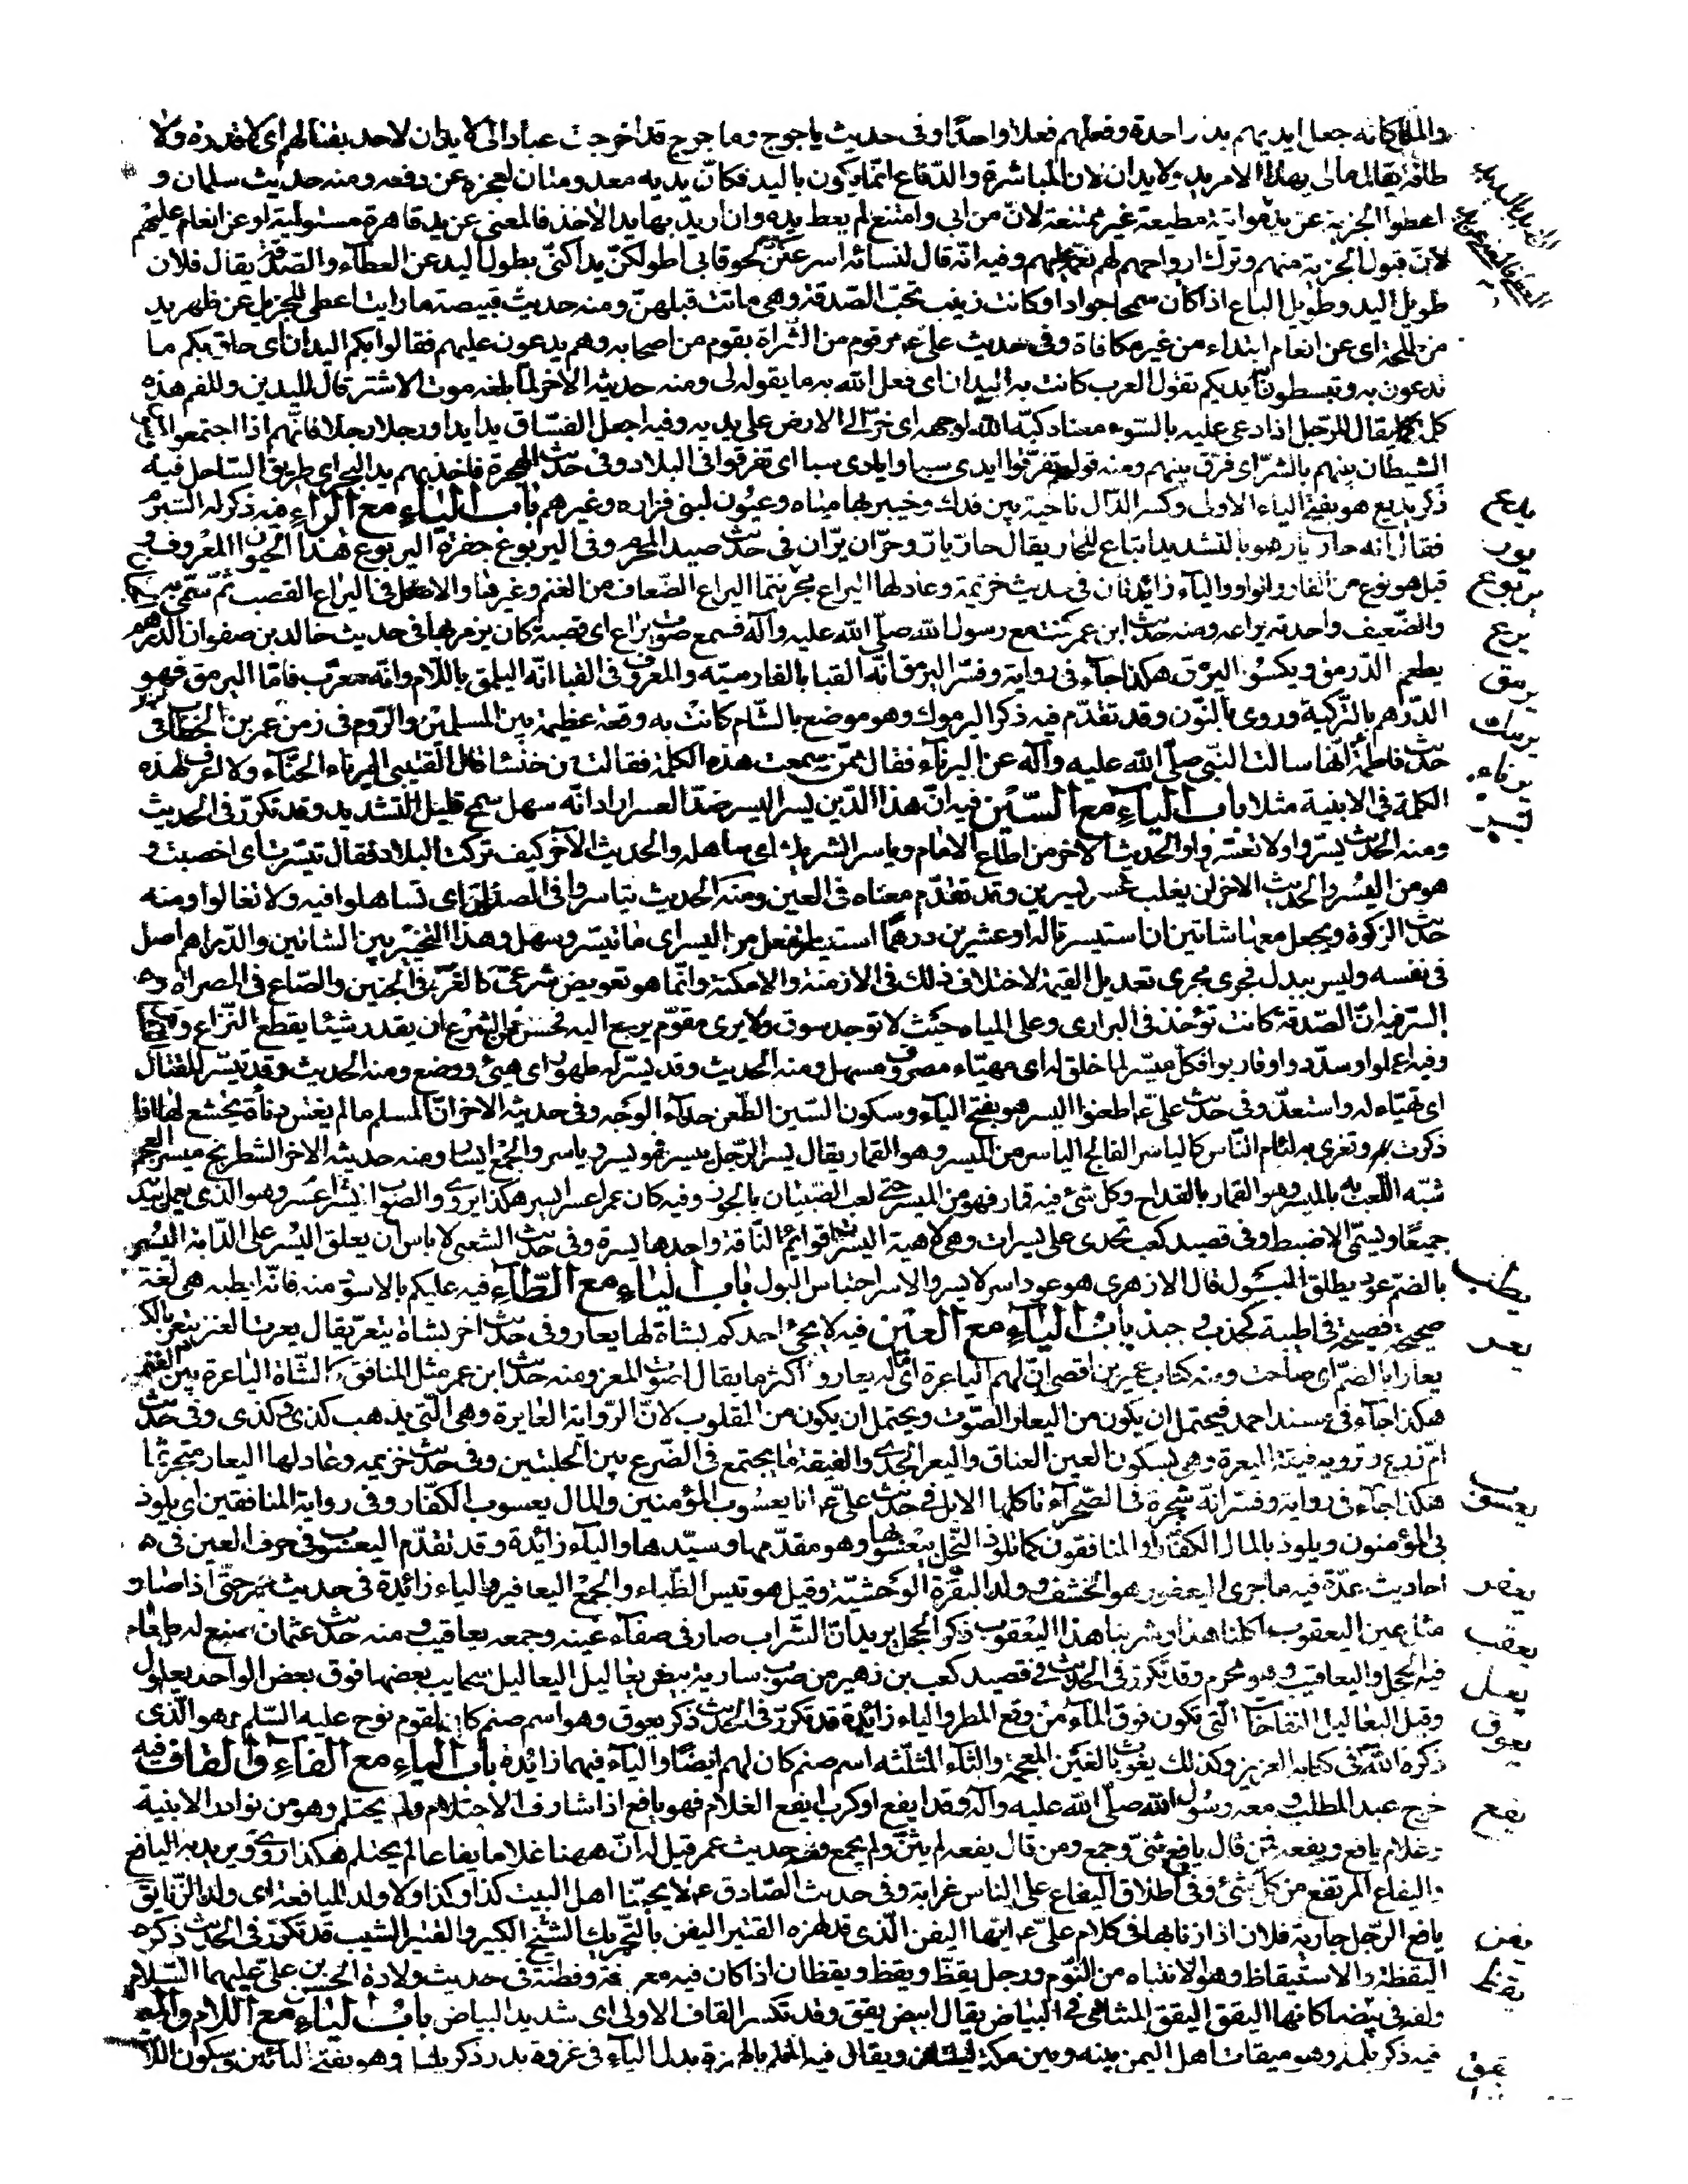 والملة كانه جعل ايديهم يدا واحدة وفعلهم فعلا واحدا وفى حديث ياجوج وماجوج قد اخرجت عبادا لى لا يدان لاحد بقتالهم اى لا قدرة ولا
طاقة يقال مالى بهذا الامر يد ولا يدان لان المباشرة والدفاع انما يكون باليد فكان يديه معدومتان لعجزه عن دفعه ومنه حديث سلمان و
اعطوا الجزية عن يد مواتية مطيعة غير ممتنعة لان من ابى وامتنع لم يعط يده وان اريد بها يد الاخذ فالمعنى عن يد قاهرة مستولية او عن انعام عليهم
لان قبول الجزية منهم وترك ارواحهم لهم نعمة عليهم وفيه انه قال لنسائه اسرعكن لحوقا بى اطولكن يدا كنى بطول اليد عن العطاء والصدقة يقال فلان
طويل اليد وطويل الباع اذا كان سمحا جوادا وكانت زينب تحب الصدقة وهى ماتت قبلهن ومنه حديث قبيصة ما رايت اعطى للجزيل عن ظهر يد
من طلحة اى عن انعام ابتداء من غير مكافاة وفى حديث على ع مر قوم من الشراة بقوم من اصحابه وهم يدعون عليهم فقالوا بكم اليدان اى حاق بكم ما
تدعون به وتبسطون ايديكم تقول العرب كانت به اليدان اى فعل الله به ما يقوله لى ومنه حديثه الاخر لما بلغه موت الاشتر قال لليدين وللفم هذه
كلمة يقال للرجل اذا دعى عليه بالسوء معناه كبه الله لوجهه اى خر الى الارض على يديه وفيه اجعل الفساق يدا يدا ورجلا رجلا فانهم اذا اجتمعوا
الشيطان بينهم بالشر اى فرق بينهم ومنه قولهم تفرقوا ايدى سبا وايادى سبا اى تفرقوا فى البلاد وفى حديث الهجرة فاخذ بهم يد البحر اى طريق الساحل فيه
ذكر يديع هو بفتح الياء الاولى وكسر الدال ناحية بين فدك وخيبر بها مياه وعيون لبنى فزاره وغيرهم باب الياء مع الراء فيه ذكر له الشبرم
فقال انه حار يار هو بالتشديد اتباع للحار يقال حار يار وحران يران فى حديث صيد المحرم وفى اليربوع جفرة اليربوع هذا الحيوان المعروف و
قيل هو نوع من الفار والواو والياء زائدتان فى حديث خزيمة وعاد لها اليراع مجرنثما اليراع الضعاف من الغنم وغيرها والاصل فى اليراع القصب ثم سمى به
والضعيف واحدته يراعه ومنه حديث ابن عمر كنت مع رسول الله صلى الله عليه وآله فسمع صوت يراع اى قصبة كان يزمر بها فى حديث خالد بن صفوان الدرهم
يطعم الدرمق ويكسو اليرمق هكذا جاء فى رواية وفسر اليرمق انه القبا بالفارسية والمعروف فى القبا انه اليلمق باللام وانه معرب فاما اليرمق فهو
الدرهم بالتركية وروى بالنون وقد تقدم فيه ذكر اليرموك وهو موضع بالشام كانت به وقعة عظيمة بين المسلمين والروم فى زمن عمر بن الخطاب فى
حديث فاطمة انها سالت النبى صلى الله عليه وآله عن اليرناء فقال ممن سمعت هذه الكلمة فقالت من خنشا قال القتيبى اليرناء الحناء ولا اعرف لهذه
الكلمة فى الابنية مثلا باب الياء مع السين فيه ان هذا الدين يسر اليسر ضد العسر اراد انه سهل سمح قليل التشديد وقد تكرر فى الحديث
ومنه الحديث يسروا ولا تعسروا والحديث الاخر من اطاع الامام وياسر الشريك اى ساهله والحديث الآخر كيف تركت البلاد فقال تيسرت اى اخصبت و
هو من اليسر والحديث الاخر لن يغلب عسر يسرين وقد تقدم معناه فى العين ومنه الحديث تياسروا فى الصداق اى تساهلوا فيه ولا تغالوا ومنه
حديث الزكوة ويجعل معها شاتين ان استيسرتا له او عشرين درهما استيسر استفعل من اليسر اى ما تيسر وسهل وهذا التخيير بين الشاتين والدراهم اصل
فى نفسه وليس ببدل فجرى مجرى تعديل القيمة لاختلاف ذلك فى الازمنة والامكنة وانما هو تعويض شرعى كالغرة فى الجنين والصاع فى المصراة و
السر فيه ان الصدقة كانت تؤخذ فى البرارى وعلى المياه حيث لا توجد سوق ولا يرى مقوم يرجع اليه فحسن فى الشرع ان يقدر شيئا يقطع النزاع و
وفيه اعملوا وسددوا وقاربوا فكل ميسر لما خلق له اى مهياء مصروف مسهل ومنه الحديث وقد يسر له طهور اى هيئ ووضع ومنه الحديث وقد تيسر للقتال
اى تهياء له واستعد وفى حديث على ع اطعنوا اليسر هو بفتح الياء وسكون السين الطعن حذاء الوجه وفى حديثه الاخر ان المسلم ما لم يغش دناءة يخشع لها اذا
ذكرت وتغرى به لئام الناس كالياسر الفالج الياسر من الميسر وهو القمار يقال يسر الرجل ييسر فهو يسر وياسر والجمع ايسار ومنه حديثه الاخر الشطرنج ميسر العجم
شبه اللعب به بالميسر وهو القمار بالقداح وكل شئ فيه قمار فهو من الميسر حتى لعب الصبيان بالجوز وفيه كان عمر اعسر ايسر هكذا يروى والصواب اعسر يسر وهو الذى يعمل بيديه
جميعا ويسمى الاضبط وفى قصيد كعب تخدى على يسرات وهى لاهية اليسرات قوائم الناقة واحدها يسرة وفى حديث الشعبى لا باس ان يعلق اليسر على الدابة اليسر
بالضم عود يطلق البول قال الازهرى هو عود اسر لا يسر والاسر احتباس البول باب الياء مع الطاء فيه عليكم بالاسود منه فانه ايطبه هى لغة
صحيحة فصيحة فى اطيبه كجذب وجبذ باب الياء مع العين فيه لا يجئ احدكم بشاة لها يعار وفى حديث اخر بشاة تيعر يقال يعرت العنز تيعر بالكسر
يعارا بالضم اى صاحت ومنه كتاب عمير بن اقصى ان لهم الياعرة اى ما له يعار واكثر ما يقال لصوت المعز ومنه حديث ابن عمر مثل المنافق كالشاة الياعرة بين الغنمين
هكذا جاء فى مسند احمد فيحتمل ان يكون من اليعار الصوت ويحتمل ان يكون من المقلوب لان الرواية العايرة وهى التى يذهب كذى وكذى وفى حديث
ام زرع وترويه فيقة اليعرة وهى بسكون العين العناق واليعر الجدى والفيقة ما يجتمع فى الضرع بين الحلبتين وفى حديث خزيمه وعاد لها اليعار مجرنثما
هكذا جاء فى رواية وفسر انه شجرة فى الصحراء تاكلها الابل فى حديث على ع انا يعسوب المؤمنين والمال يعسوب الكفار وفى رواية المنافقين اى يلوذ
بى المؤمنون ويلوذ بالمال الكفار او المنافقون كما تلوذ النحل بيعسوبها وهو مقدمها وسيدها والياء زائدة وقد تقدم اليعسوب فى حرف العين فى
احاديث عدة فيه ما جرى اليعفور هو الخشف وولد البقرة الوحشية وقيل هو تيس الظباء والجمع اليعافير والياء زائدة فى حديث عمر حتى اذا صار
مثل عين اليعقوب اكلنا هذا وشربنا هذا اليعقوب ذكر الحجل يريد ان الشراب صار فى صفاء عينه وجمعه يعاقيب ومنه حديث عثمان صنع له طعام
فيه الحجل واليعاقيب وهو محرم وقد تكرر فى الحديث فى قصيد كعب بن زهير من صوب سارية بيض يعاليل اليعاليل سحايب بعضها فوق بعض الواحد يعلول
وقيل اليعاليل النفاخات التى تكون فوق الماء من وقع المطر والياء زائدة قد تكرر فى الحديث ذكر يعوق وهو اسم صنم كان لقوم نوح عليه السلم وهو الذى
ذكره الله فى كتابه العزيز وكذلك يغوث بالغين المعجمة والثاء المثلثه اسم صنم كان لهم ايضا والياء فيهما زائدة باب الياء مع الفاء والقاف فيه
خرج عبد المطلب ومعه رسول الله صلى الله عليه وآله وقد ايفع او كرب ايفع الغلام فهو يافع اذا شارف الاحتلام ولم يحتلم وهو من نوادر الابنية
وغلام يافع ويفعه فمن قال يافع ثنى وجمع ومن قال يفعه لم يثن ولم يجمع وفى حديث عمر قيل له ان ههنا غلاما يفاعا لم يحتلم هكذا روى ويريد به اليافع
واليفاع المرتفع من كل شئ وفى اطلاق اليفاع على الناس غرابة وفى حديث الصادق ع لا يحبنا اهل البيت كذا وكذا ولا ولد الميافعة اى ولد الزنا يقال
يافع الرجل جارية فلان اذا زنا بها فى كلام على ع ايها اليفن الذى قد لهزه القتير اليفن بالتحريك الشيخ الكبير والقتير الشيب قد تكرر فى الحديث ذكره
اليقظة والاستيقاظ وهو الانتباه من النوم ورجل يقظ ويقظ ويقظان اذا كان فيه معرفة وفطنة فى حديث ولادة الحسن بن على عليهما السلام
ولفه فى بيضا كانها اليقق اليقق المتناهى فى البياض يقال ابيض يقق وقد تكسر القاف الاولى اى شديد البياض باب الياء مع اللام والميم
فيه ذكر يلملم وهو ميقات اهل اليمن بينه وبين مكة ليلتان ويقال فيه الملم بالهمزة بدل الياء فى غزوة بدر ذكر يليل وهو بفتح اليائين وسكون اللام
يديع
يرر
يربوع
يرع
يرمق
يرمك
يرناء
يسر
يطب
يعر
يعسب
يعفر
يعقب
يعل
يعوق
يفع
يفن
يقظ
يقق